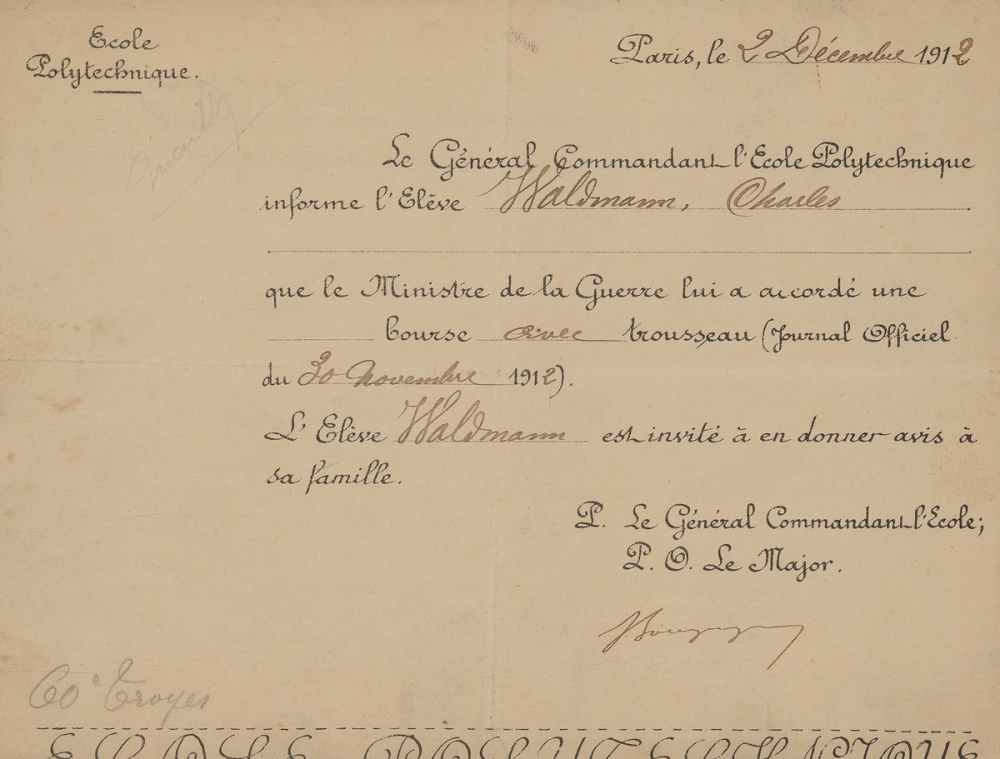 Ecole
Polytechnique.
Paris, le 2 Décembre 1912
Le Général Commandant l'Ecole Polytechnique
informe l'Elève Waldmann, Charles
que le Ministre de la Guerre lui a accordé une
bourse avec trousseau (Journal Officiel
du 30 Novembre 1912).
L'Elève Waldmann est invité à en donner avis à
sa famille.
P. Le Général Commandant l'Ecole;
P. O. Le Major.
Troyes
ECOLE POLYTECHNIQUE